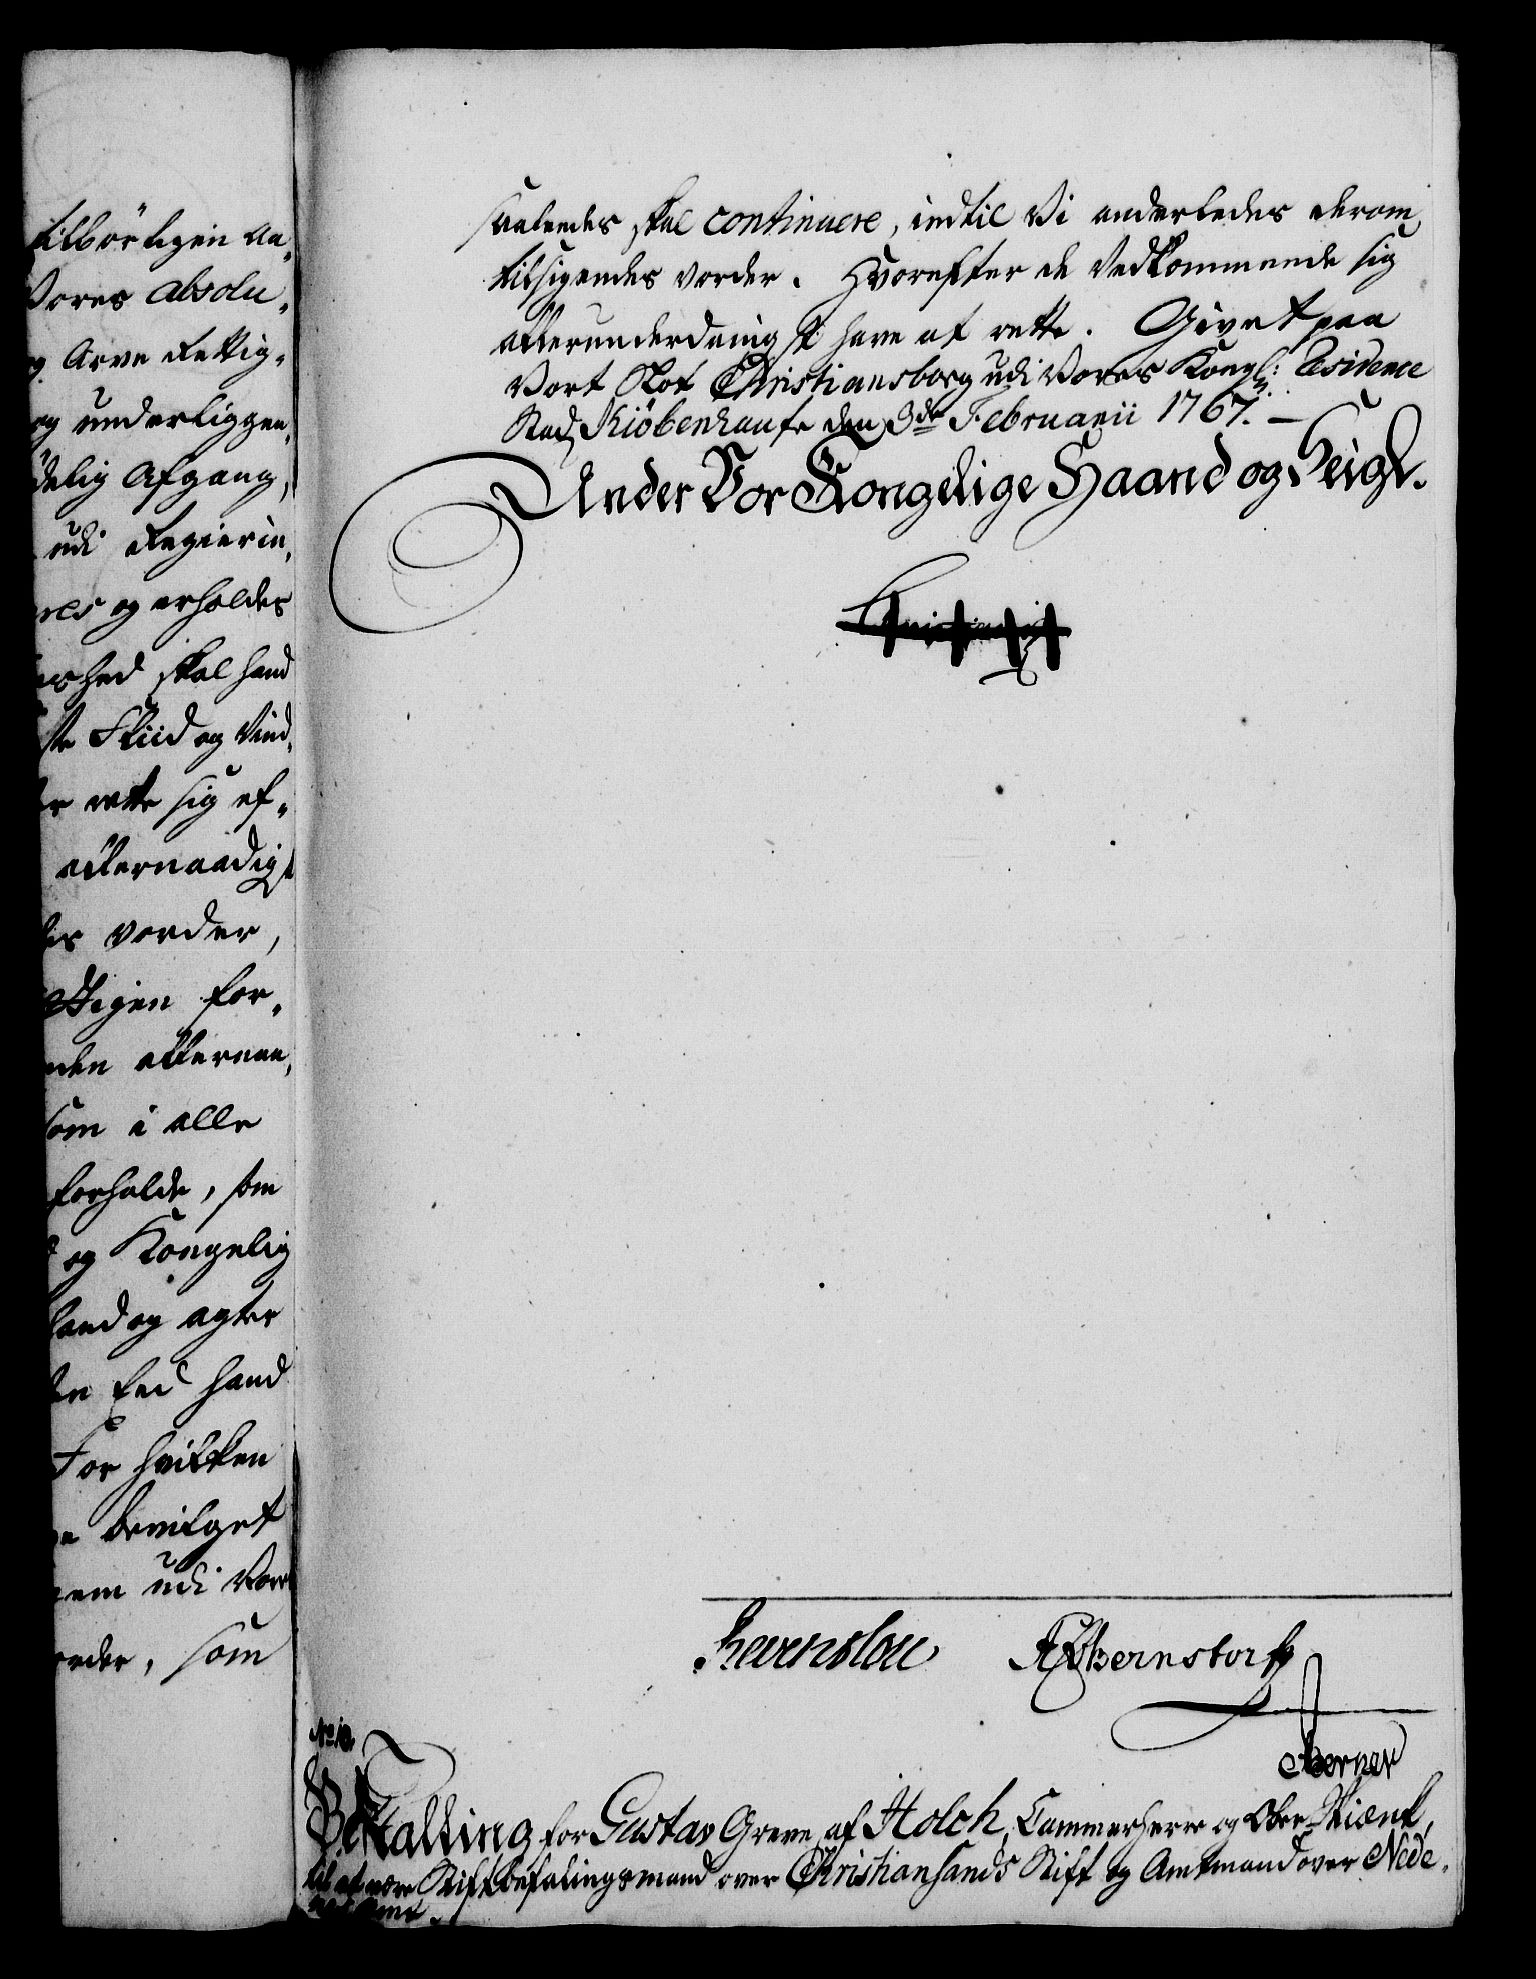 tilbörligen An-
Vores absolu-
og Arve Rettig-
og underliggen-
delig Afgang,
udi Regierin-
res og erholdes
hed skal hand
ste Fliid og Vind-
rette sig ef-
allernaadigst
vorder,
for-
den allernaa-
som i alle
forholde, som
og Kongelig
land og agter
Eed hand
For hvilken
bevilget
dem udi Vore
vorder, som
saaledes skal continuere, indtil Vi anderledes derom
tilsigendes vorder. Hvorefter de Vedkommende sig
allerunderdanigst have at rette. Givet paa
Vort Slot Christiansborg udi Vores Kongl: Residence
Stad Kiöbenhaufn den 3de Februarii 1767. —
Under Vor Kongelige Haand og Seigl.
Christian
Reventlou
Bernstorff
Berner
No 10.
Bestalling for Gustav Greve af Holch, Cammerherre og Ober Skienk,
til at være Stiftbefalingsmand over Christiansands Stift og Amtmand over Nede-
nes Amt.